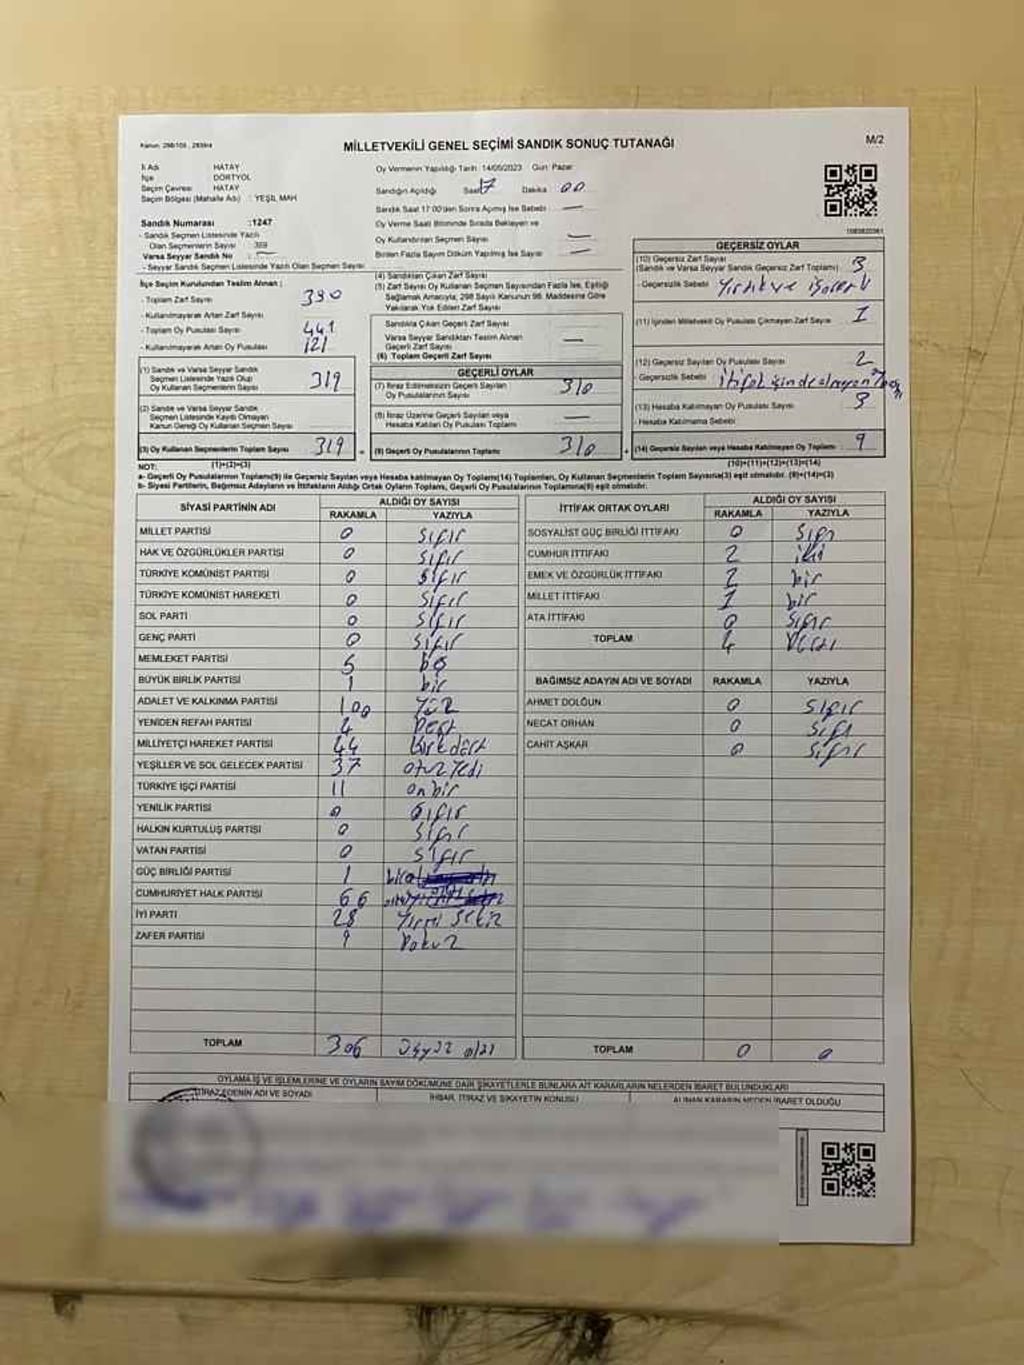 Kanun: 298/105 , 2839/4
MİLLETVEKİLİ GENEL SEÇİMİ SANDIK SONUÇ TUTANAĞI
M/2
İl Adı HATAY
İlçe DÖRTYOL
Seçim Çevresi HATAY
Seçim Bölgesi (Mahalle Adı) : YEŞİL MAH
Sandık Numarası :1247
- Sandık Seçmen Listesinde Yazılı
Olan Seçmenlerin Sayısı 369
Varsa Seyyar Sandık No : —
- Seyyar Sandık Seçmen Listesinde Yazılı Olan Seçmen Sayısı
Oy Vermenin Yapıldığı Tarih :14/05/2023 Gün: Pazar
Sandığın Açıldığı Saat 17 Dakika 00
Sandık Saat 17:00'den Sonra Açılmış İse Sebebi —
Oy Verme Saati Bitiminde Sırada Bekleyen ve
Oy Kullandırılan Seçmen Sayısı —
Birden Fazla Sayım Döküm Yapılmış İse Sayısı —
İlçe Seçim Kurulundan Teslim Alınan ;
- Toplam Zarf Sayısı 390
- Kullanılmayarak Artan Zarf Sayısı
- Toplam Oy Pusulası Sayısı 441
- Kullanılmayarak Artan Oy Pusulası 121
(1) Sandık ve Varsa Seyyar Sandık
Seçmen Listesinde Yazılı Olup
Oy Kullanan Seçmenlerin Sayısı 319
(2) Sandık ve Varsa Seyyar Sandık
Seçmen Listesinde Kayıtlı Olmayan
Kanun Gereği Oy Kullanan Seçmen Sayısı
(3) Oy Kullanan Seçmenlerin Toplam Sayısı 319
(1)+(2)=(3)
(4) Sandıktan Çıkan Zarf Sayısı
(5) Zarf Sayısı Oy Kullanan Seçmen Sayısından Fazla İse, Eşitliği
Sağlamak Amacıyla; 298 Sayılı Kanunun 98. Maddesine Göre
Yakılarak Yok Edilen Zarf Sayısı
Sandıkta Çıkan Geçerli Zarf Sayısı
Varsa Seyyar Sandıktan Teslim Alınan
Geçerli Zarf Sayısı —
(6) Toplam Geçerli Zarf Sayısı
GEÇERLİ OYLAR
(7) İtiraz Edilmeksizin Geçerli Sayılan
Oy Pusulalarının Sayısı 310
(8) İtiraz Üzerine Geçerli Sayılan veya
Hesaba Katılan Oy Pusulası Toplamı —
(9) Geçerli Oy Pusulalarının Toplamı 310
GEÇERSİZ OYLAR
(10) Geçersiz Zarf Sayısı
(Sandık ve Varsa Seyyar Sandık Geçersiz Zarf Toplamı) 3
- Geçersizlik Sebebi Yırtık ve
(11) İçinden Milletvekili Oy Pusulası Çıkmayan Zarf Sayısı 1
(12) Geçersiz Sayılan Oy Pusulası Sayısı 2
- Geçersizlik Sebebi itifak içinde olmayan
(13) Hesaba Katılmayan Oy Pusulası Sayısı 3
- Hesaba Katılmama Sebebi
(14) Geçersiz Sayılan veya Hesaba Katılmayan Oy Toplamı 9
(10)+(11)+(12)+(13)=(14)
NOT:
a- Geçerli Oy Pusulalarının Toplamı(9) ile Geçersiz Sayılan veya Hesaba katılmayan Oy Pusulası Toplamı(14) Toplamları, Oy Kullanan Seçmenlerin Toplam Sayısına(3) eşit olmalıdır. (9)+(14)=(3)
b- Siyasi Partilerin, Bağımsız Adayların ve İttifakların Aldığı Ortak Oyların Toplamı, Geçerli Oy Pusulalarının Toplamına(9) eşit olmalıdır.
SİYASİ PARTİNİN ADI ALDIĞI OY SAYISI
RAKAMLA YAZIYLA
MİLLET PARTİSİ 0 Sıfır
HAK VE ÖZGÜRLÜKLER PARTİSİ 0 Sıfır
TÜRKİYE KOMÜNİST PARTİSİ 0 Sıfır
TÜRKİYE KOMÜNİST HAREKETİ 0 Sıfır
SOL PARTİ 0 Sıfır
GENÇ PARTİ 0 Sıfır
MEMLEKET PARTİSİ 5 beş
BÜYÜK BİRLİK PARTİSİ 1 bir
ADALET VE KALKINMA PARTİSİ 100 Yüz
YENİDEN REFAH PARTİSİ 4 Dört
MİLLİYETÇİ HAREKET PARTİSİ 44 kırkdört
YEŞİLLER VE SOL GELECEK PARTİSİ 37 otuz Yedi
TÜRKİYE İŞÇİ PARTİSİ 11 on bir
YENİLİK PARTİSİ 0 Sıfır
HALKIN KURTULUŞ PARTİSİ 0 Sıfır
VATAN PARTİSİ 0 Sıfır
GÜÇ BİRLİĞİ PARTİSİ 1
CUMHURİYET HALK PARTİSİ 66
İYİ PARTİ 28 Yirmi Sekiz
ZAFER PARTİSİ 9 Dokuz
TOPLAM 306 Üçyüz altı
İTTİFAK ORTAK OYLARI ALDIĞI OY SAYISI
RAKAMLA YAZIYLA
SOSYALİST GÜÇ BİRLİĞİ İTTİFAKI 0 Sıfır
CUMHUR İTTİFAKI 2 iki
EMEK VE ÖZGÜRLÜK İTTİFAKI bir
MİLLET İTTİFAKI 1 bir
ATA İTTİFAKI 0 Sıfır
TOPLAM 4 Dört
BAĞIMSIZ ADAYIN ADI VE SOYADI RAKAMLA YAZIYLA
AHMET DOLĞUN 0 Sıfır
NECAT ORHAN 0 Sıfır
CAHİT AŞKAR 0 Sıfır
TOPLAM 0 0
OYLAMA İŞ VE İŞLEMLERİNE VE OYLARIN SAYIM DÖKÜMÜNE DAİR ŞİKAYETLERLE BUNLARA AİT KARARLARIN NELERDEN İBARET BULUNDUKLARI
İTİRAZ EDENİN ADI VE SOYADI İHBAR, İTİRAZ VE ŞİKAYETİN KONUSU ALINAN KARARIN NEDEN İBARET OLDUĞU